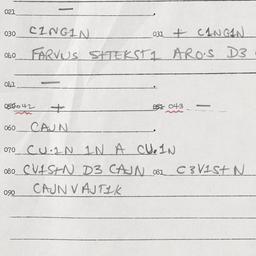 021 —
030 C1NG1N 031 + C1NG1N
060 FARVUS S+TEKST1 ARO.S D3
061 —
042 + 043 —
060 CAJN
070 CU.1N 1N A CU.1N
080 CV1S+N D3 CAJN 081 C3V1S+N
090 CAJN V AJT1K